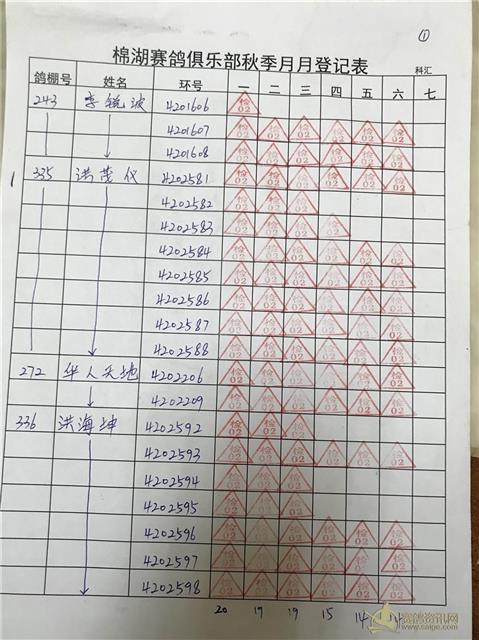 ①
棉湖赛鸽俱乐部秋季月月登记表
科汇
鸽棚号 姓名 环号 一 二 三 四 五 六 七
243 李锐波 4201606 检02
4201607 检02 检02 检02 检02 检02 检02
4201608 检02 检02 检02 检02 检02 检02
335 洪茂仪 4202581 检02 检02 检02 检02 检02 检02
4202582 检02 检02 检02
4202583 检02 检02 检02 检02
4202584 检02 检02 检02 检02 检02 检02
4202585 检02 检02 检02 检02 检02 检02
4202586 检02 检02 检02 检02 检02 检02
4202587 检02 检02 检02 检02 检02 检02
4202588 检02 检02 检02 检02 检02 检02
272 华人天地 4202206 检02 检02 检02 检02 检02 检02
4202209 检02 检02 检02 检02 检02 检02
336 洪海坤 4202592 检02 检02 检02
4202593 检02 检02 检02 检02 检02 检02
4202594 检02 检02 检02
4202595 检02 检02 检02
4202596 检02 检02 检02 检02 检02 检02
4202597 检02 检02 检02 检02 检02 检02
4202598 检02 检02 检02 检02 检02 检02
20 19 19 15 14
赛鸽资讯网
www.saige.com